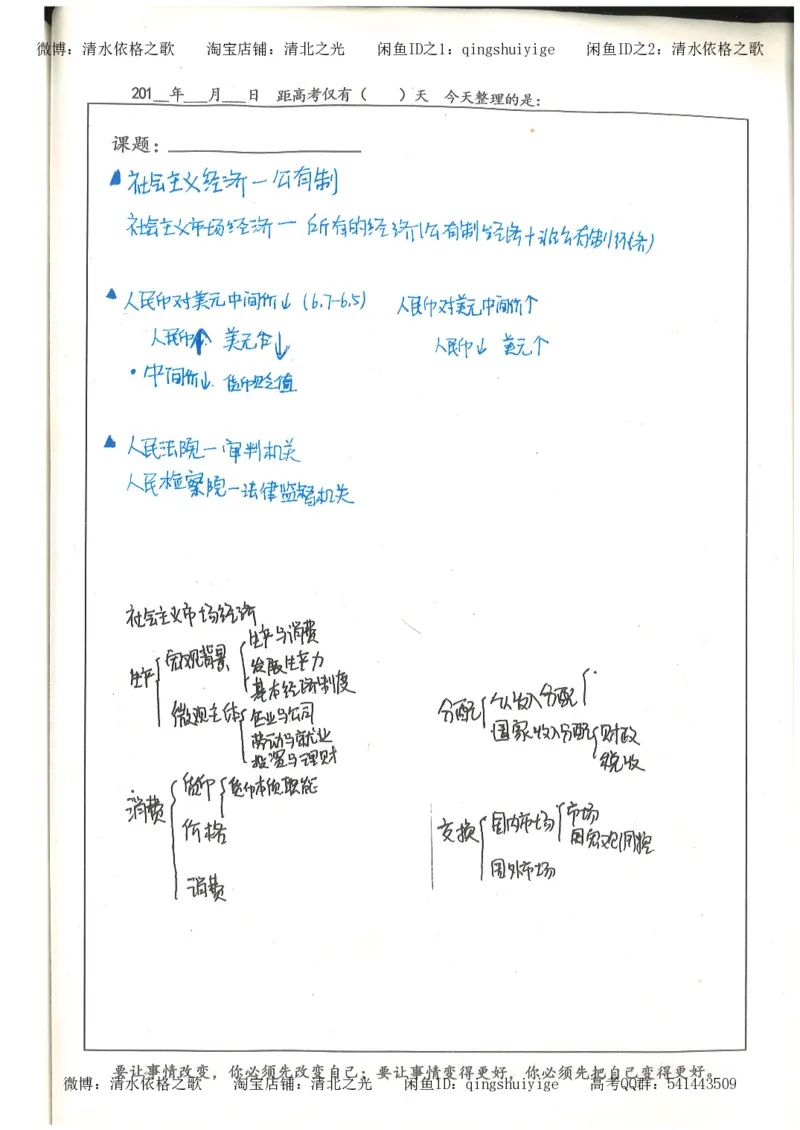 微博：清水依格之歌　　淘宝店铺：清北之光　　闲鱼ID之1：qingshuiyige　　闲鱼ID之2：清水依格之歌
201__年___月___日　距高考仅有（　　）天　今天整理的是：
课题：
▲社会主义经济—公有制
社会主义市场经济— 所有的经济(公有制经济+非公有制经济)
▲人民币对美元中间价↓ (6.7-6.5)
人民币↑ 美元↓
·中间价↓. 货币贬值
人民币对美元中间价↑
人民币↓ 美元↑
▲人民法院—审判机关
人民检察院—法律监督机关
社会主义市场经济
生产
宏观背景
生产与消费
发展生产力
基本经济制度
微观主体
企业与公司
劳动与就业
投资与理财
消费
货币
货币本质职能
价格
消费
分配
个人收入分配
国家收入分配
财政
税收
交换
国内市场
市场
国宏观调控
国外市场
要让事情改变，你必须先改变自己；要让事情变得更好，你必须先把自己变得更好。
微博：清水依格之歌　　淘宝店铺：清北之光　　闲鱼ID：qingshuiyige　　高考QQ群：541443509